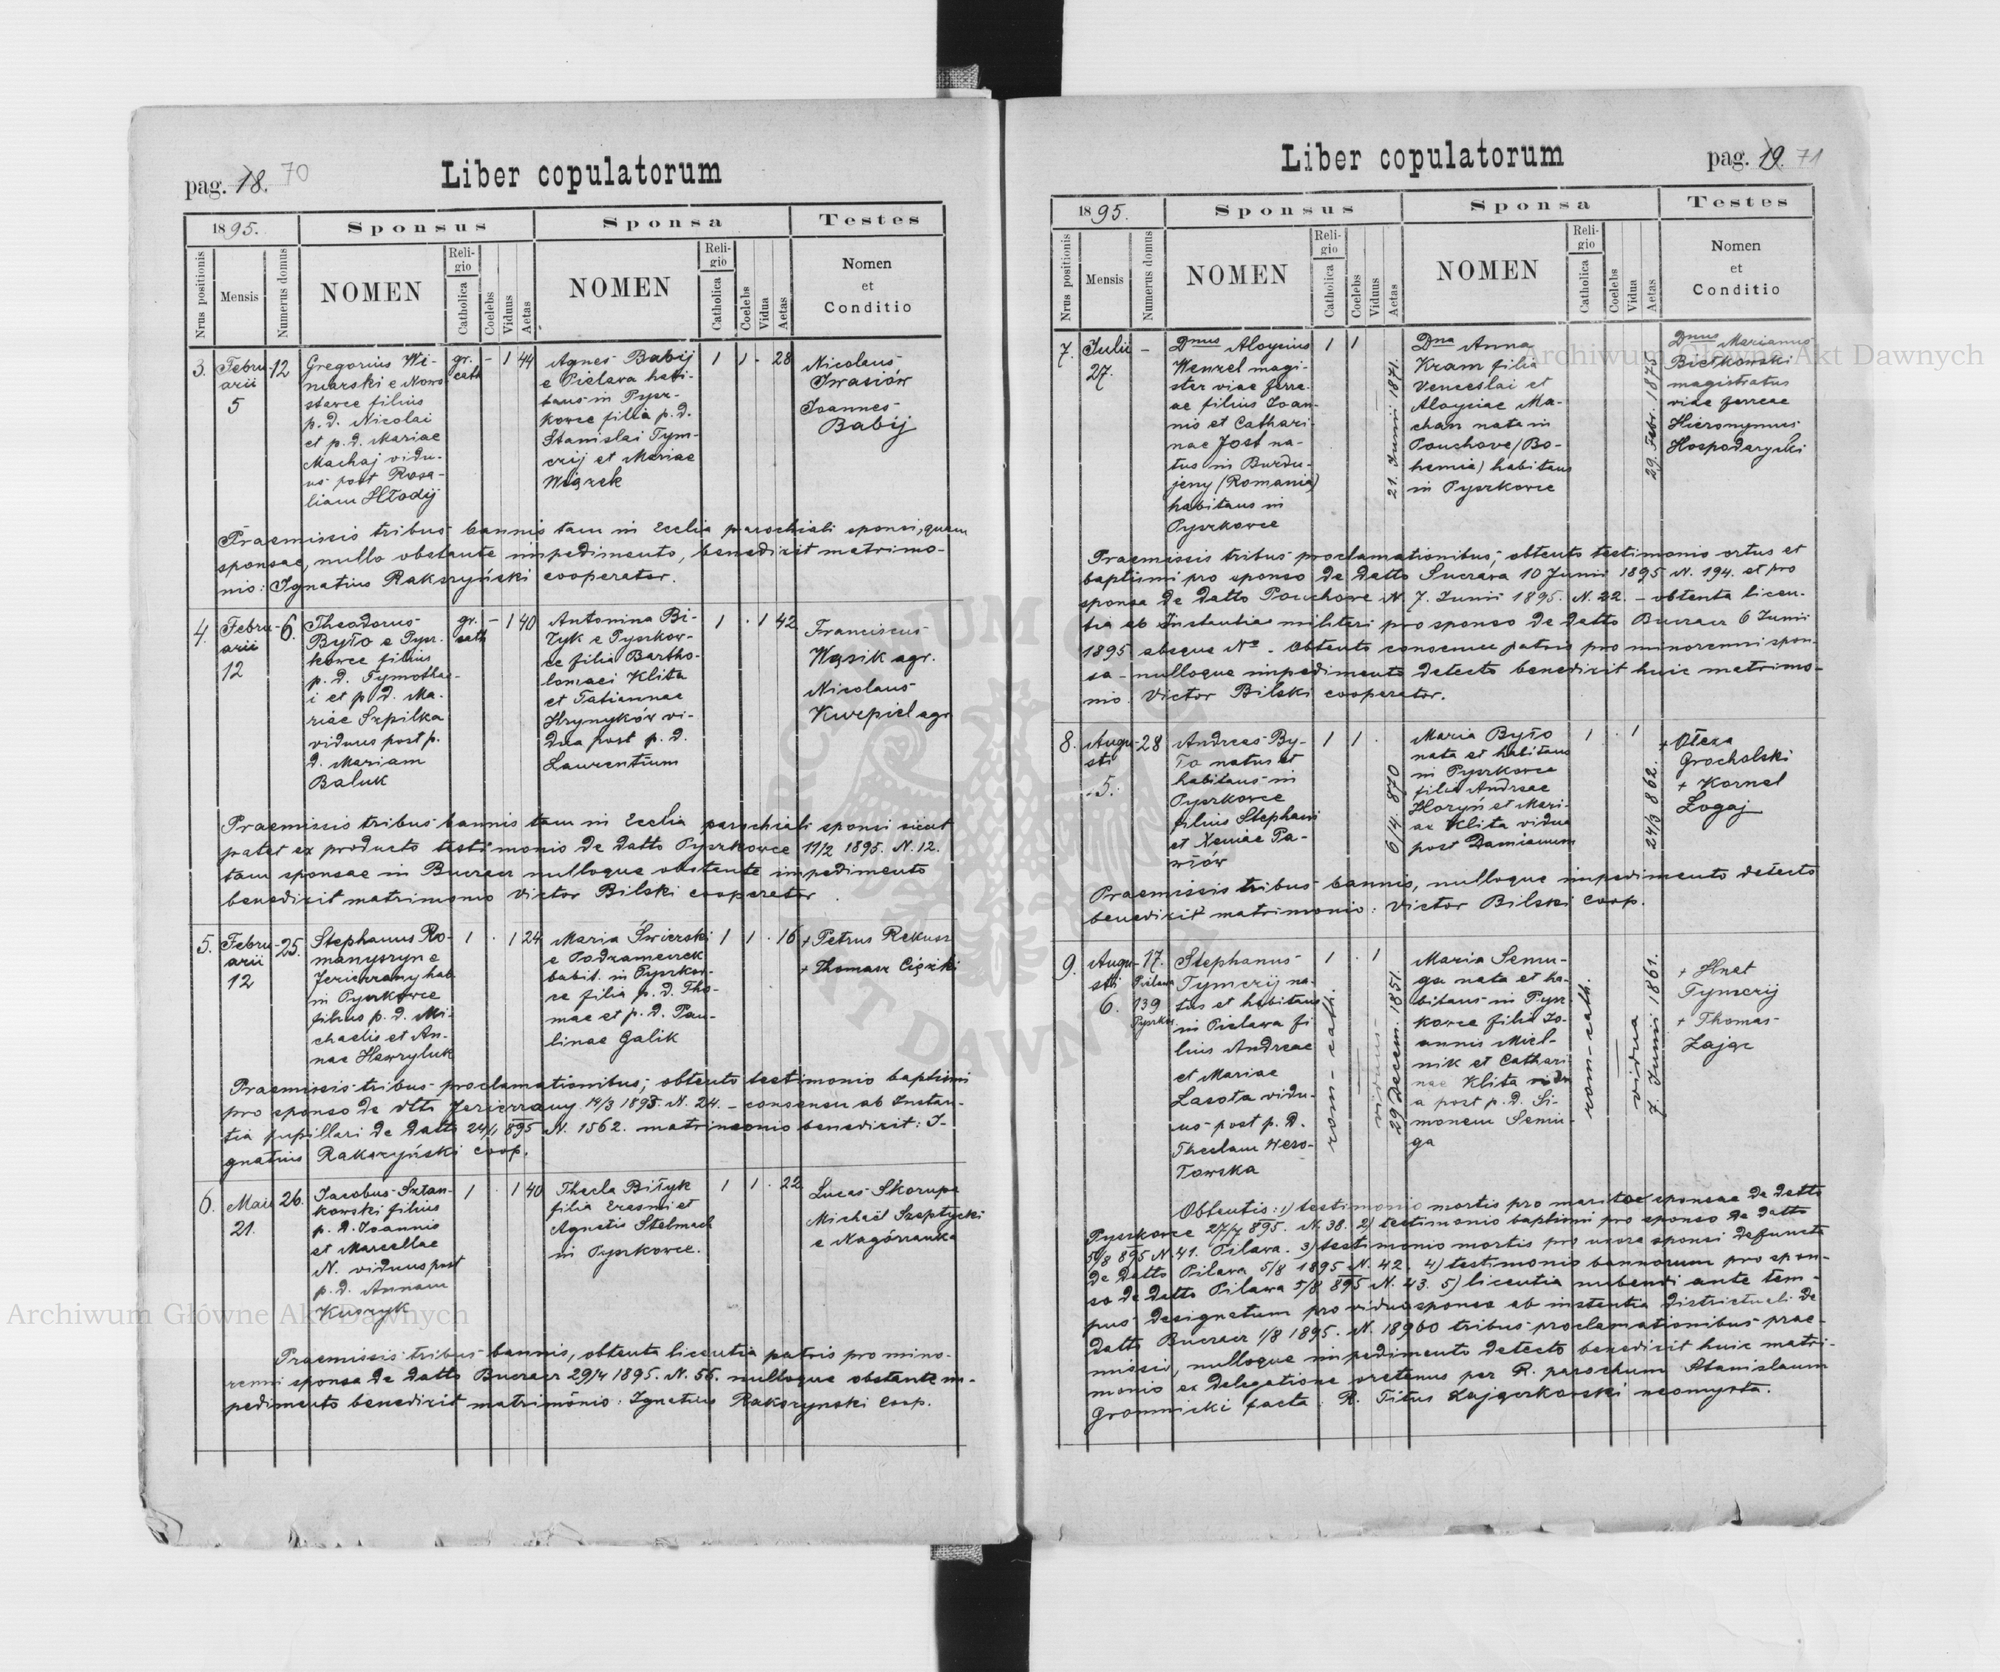 pag. 18. 70
Liber copulatorum
1895.
Sponsus
Sponsa
Testes
Nrus positionis
Mensis
Numerus domus
NOMEN
Religio
Catholica
Coelebs
Viduus
Aetas
NOMEN
Religio
Catholica
Coelebs
Vidua
Aetas
Nomen
et
Conditio
3.
Febru-
arii
5
12
Gregorius Wi-
niarski e Nowo
stawce filius
p. d. Nicolai
et p. d. Mariae
Machaj vidu-
us post Rosa-
liam Hłodij
gr.
cath
- 1 44
Agnes Babij
e Pielawa habi-
tans in Pysz-
kowce filia p. d.
Stanislai Tym-
czij et Mariae
Wiązek
1 1 - 28
Nicolaus
Iwasiów
Joannes
Babij
Praemissis tribus bannis tam in Ecclia parochiali sponsi, quam
sponsae, nullo obstante impedimento, benedixit matrimo-
nio: Ignatius Rakszyński cooperator.
4.
Febru-
arii
12
6.
Theodorus
Było e Pysz-
kowce filius
p. d. Tymothe-
i et p. d. Ma-
riae Szpilka
viduus post p.
d. Mariam
Baluk
gr.
cath
- 1 40
Antonina Bi-
łyk e Pyszkow-
ce filia Bartho-
lomaei Klita
et Tatiannae
Hrynyków vi-
dua post p. d.
Laurentium
1 . 1 42
Franciscus
Wąsik agr.
Nicolaus
Kurpiel agr
Praemissis tribus bannis tam in Ecclia parochiali sponsi sicut
patet ex producto testimonio de datto Pyszkowce 11/2 1895. N. 12.
tam sponsae in Buczacz nulloque obstante impedimento
benedixit matrimonio Victor Bilski cooperator
5.
Febru-
arii
12
25.
Stephanus Ro-
manyszyn e
Jezierzany hab
in Pyszkowce
filius p. d. Mi-
chaelis et An-
nae Hawryluk
1 . 1 24
Maria Świerski
e Podzameczek
habit. in Pyszkow-
ce filia p. d. Tho-
mae et p. d. Pau-
linae Galik
1 1 . 16
+ Petrus Rekusz
+ Thomasz Ciężki
Praemissis tribus proclamationibus, obtento testimonio baptismi
pro sponso de dtto Jezierzany 14/3 1893. N. 24. - consensu ab Instan-
tia pupillari de datto 24/1 895 N. 1562. matrimonio benedixit: I-
gnatius Rakszyński coop.
6.
Maii
21.
26.
Jacobus Sztan-
kowski filius
p. d. Joannis
et Marcellae
N. viduus post
p. d. Annam
Kuszyk
1 . 1 40
Thecla Biłyk
filia Erasmi et
Agnetis Stelmach
in Pyszkowce.
1 1 . 22
Lucas Skorupa
Michael Szeptycki
e Nagórzanka
Praemissis tribus bannis, obtenta licentia patris pro mino-
renni sponsa de datto Buczacz 29/4 1895. N. 56. nulloque obstante im-
pedimento benedixit matrimonio: Ignatius Rakszynski Coop.
Liber copulatorum
pag. 19. 71
1895.
Sponsus
Sponsa
Testes
Nrus positionis
Mensis
Numerus domus
NOMEN
Religio
Catholica
Coelebs
Viduus
Aetas
NOMEN
Religio
Catholica
Coelebs
Vidua
Aetas
Nomen
et
Conditio
7.
Julii
27.
-
Dnus Aloysius
Wenzel magi-
ster viae ferre-
ae filius Joan-
nis et Cathari-
nae Jost na-
tus in Burdu-
jeny (Romania)
habitans in
Pyszkowce
1 1
21. Junii 1871.
Dna Anna
Kram filia
Venceslai et
Aloysiae Ma-
chan nata in
Pouchove (Bo-
hemia) habitans
in Pyszkowce
29. Febr. 1875
Dnus Marianus
Bietkowski
magistratus
viae ferreae
Hieronymus
Hospodaryski
Praemissis tribus proclamationibus, obtento testimonio ortus et
baptismi pro sponso de datto Suczava 10 Junii 1895 N. 194. et pro
sponsa de datto Pouchove N. 7. Junii 1895. N. 22. - obtenta licen-
tia ab Instantia militari pro sponso de datto Buczacz 6 Junii
1895 absque No - Obtento consensu patris pro minorenni spon-
sa - nulloque impedimento detecto benedixit huic matrimo-
nio. Victor Bilski cooperator.
8.
Augu-
sti
5.
28
Andreas By-
ło natus et
habitans in
Pyszkowce
filius Stephani
et Xeniae Pa-
włów
1 1 .
6/4. 870
Maria Było
nata et habitans
in Pyszkowce
filia Andreae
Horyń et Mari-
ae Klita vidua
post Damianum
1 . 1
24/3 862.
+ Olexa
Grocholski
+ Kornel
Zogaj
Praemissis tribus bannis, nulloque impedimento detecto
benedixit matrimonio: Victor Bilski Coop.
9.
Augu-
sti
6.
17.
Pielawa
139
Pyszkow
Stephanus
Tymczij na-
tus et habitans
in Pielawa fi-
lius Andreae
et Mariae
Lasota vidu-
us post p. d.
Theclam Weso-
łowska
1 . 1
rom-cath.
viduus
29 Decem. 1851.
Maria Semu-
ga nata et ha-
bitans in Pysz-
kowce filia Jo-
annis Miel-
nik et Cathari-
nae Klita vidu-
a post p. d. Si-
monem Semu-
ga
rom-cath.
vidua
7. Junii 1861.
+ Hnat
Tymczij
+ Thomas
Zając
Obtentis: 1) testimonio mortis pro marito sponsae de datto
Pyszkowce 27/7 895. N. 38. 2) testimonio baptismi pro sponso de datto
5/8 895 N. 41. Pilawa. 3) testimonio mortis pro uxore sponsi defuncta
de datto Pilawa 5/8 1895 N. 42. 4) testimonio bannorum pro spon-
so de datto Pilawa 5/8 895 N. 43. 5) licentia nubendi ante tem-
pus designatum pro vidua sponsa ab instantia districtuali de
datto Buczacz 1/8 1895. N. 18960 tribus proclamationibus prae-
missis, nulloque impedimento detecto benedixit huic matri-
monio ex delegatione oretenus per R. parochum Stanislaum
Gromnicki facta: R. Titus Zajączkowski neomysta.
Archiwum Główne Akt Dawnych
Archiwum Główne Akt Dawnych